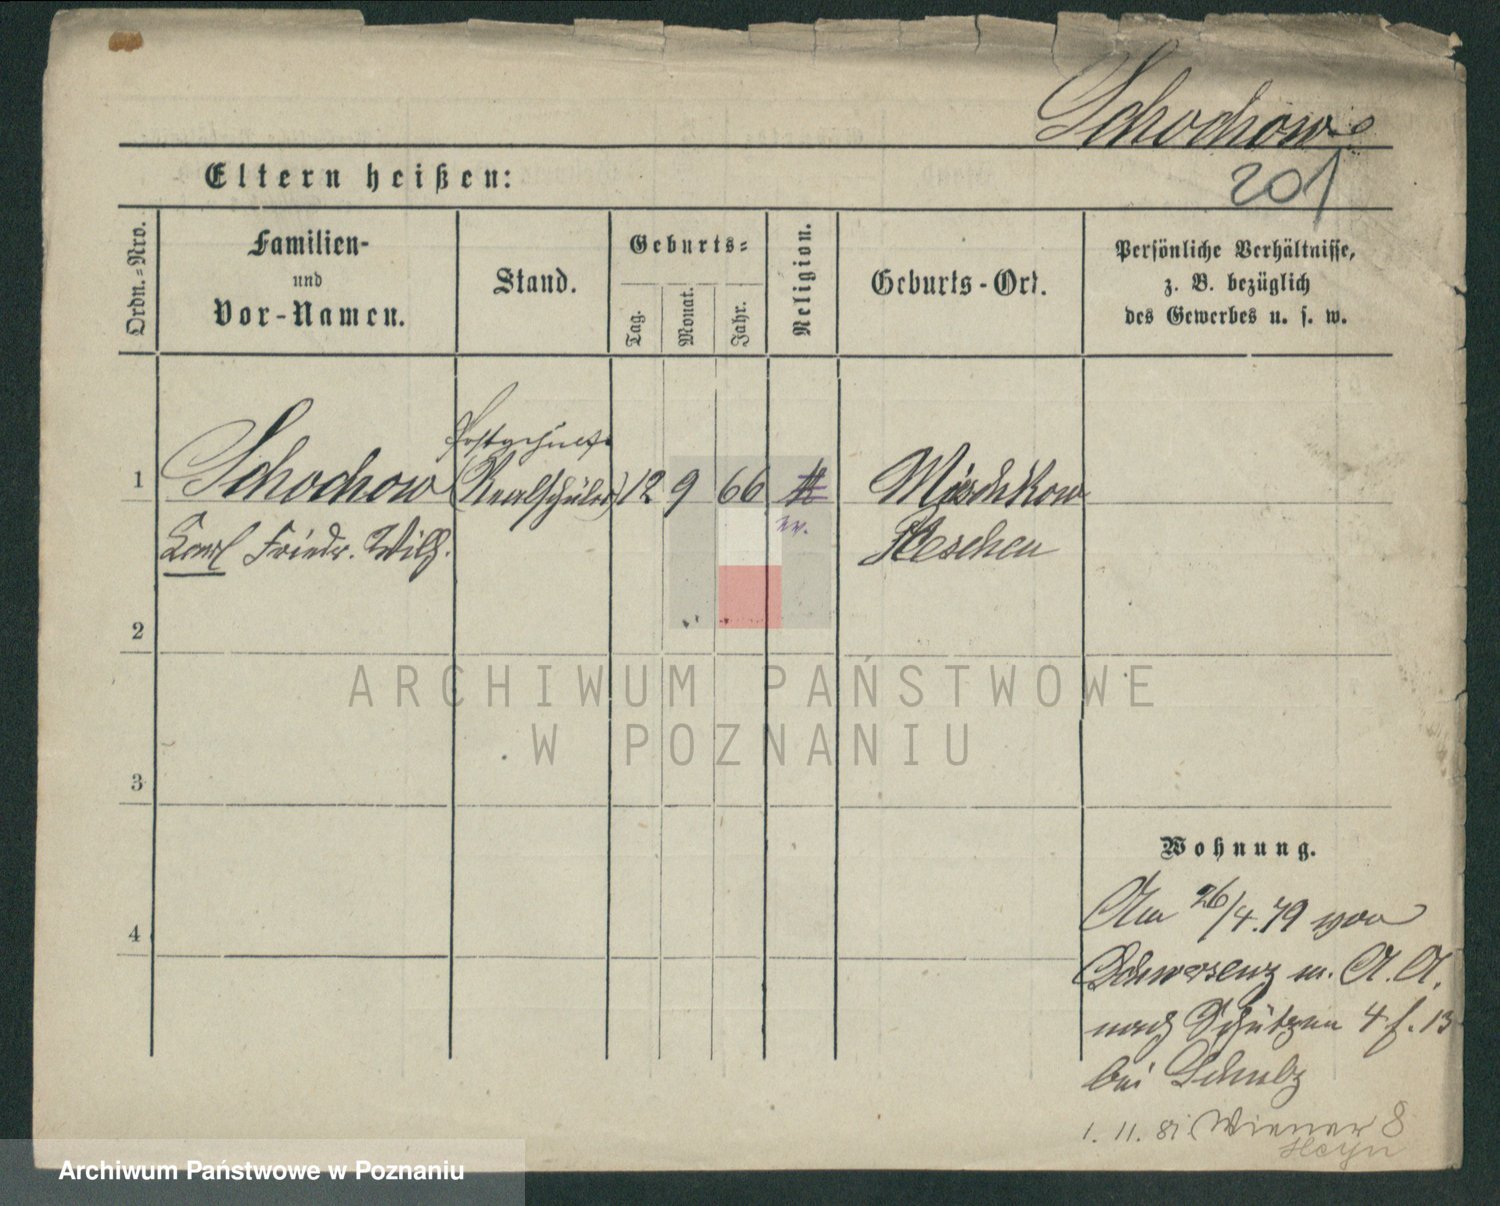 Schochow
201
Eltern heißen:
Ordn.-Nro.
Familien-
und
Vor-Namen.
Stand.
Geburts-
Tag.
Monat.
Jahr.
Religion.
Geburts-Ort.
Persönliche Verhältnisse,
z. B. bezüglich
des Gewerbes u. s. w.
1 Schochow (Realschüler) 12 9 66 Mieschkow
Karl Friedr. Wilh. ev. Pleschen
2
3
4
Wohnung.
Am 26/4.79 von
Schwersenz m. A. A.
nach Schützen 4 f. 13
bei Schulz
1. 11. 81. Wiener 8
Heyn
ARCHIWUM PAŃSTWOWE
W POZNANIU
Archiwum Państwowe w Poznaniu